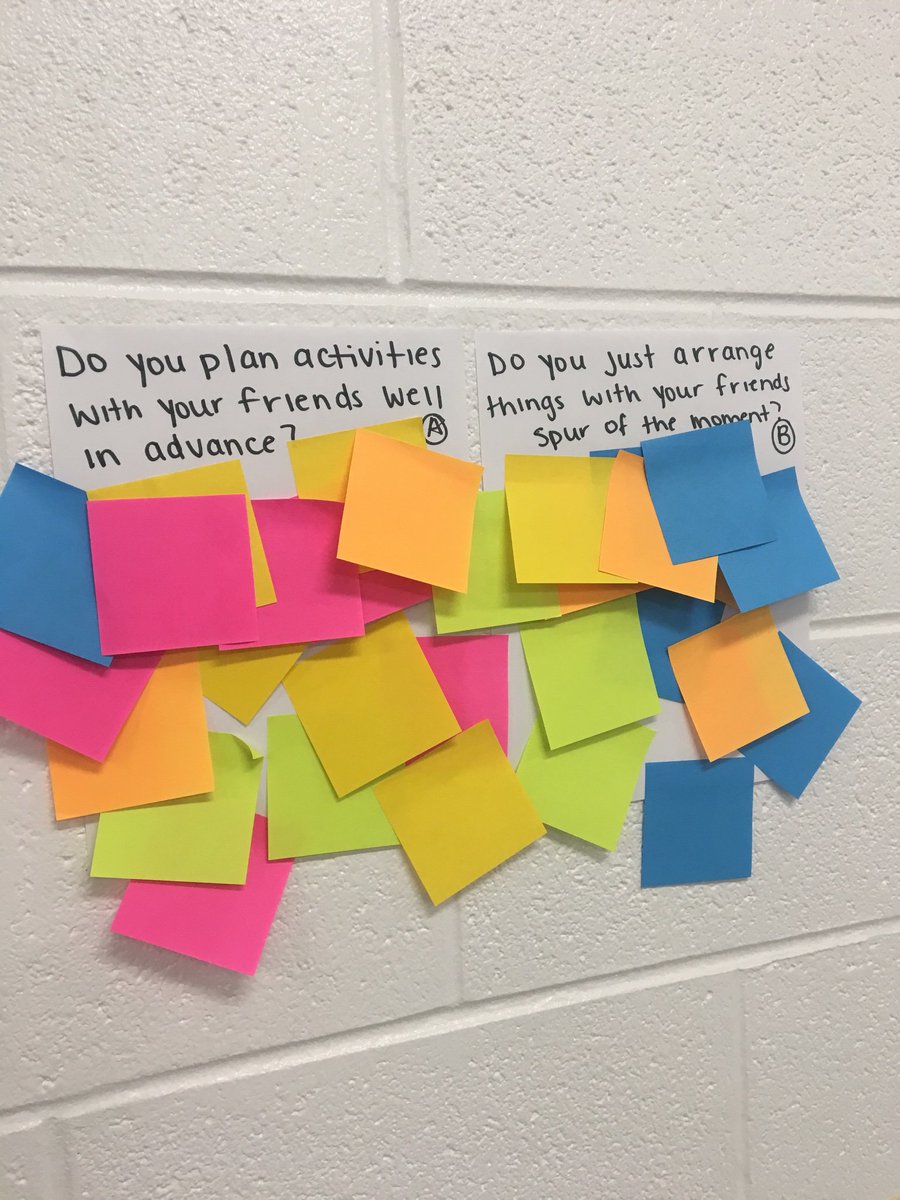 Do you plan activities
with your friends well
in advance?
A
Do you just arrange
things with your friends
spur of the moment?
B